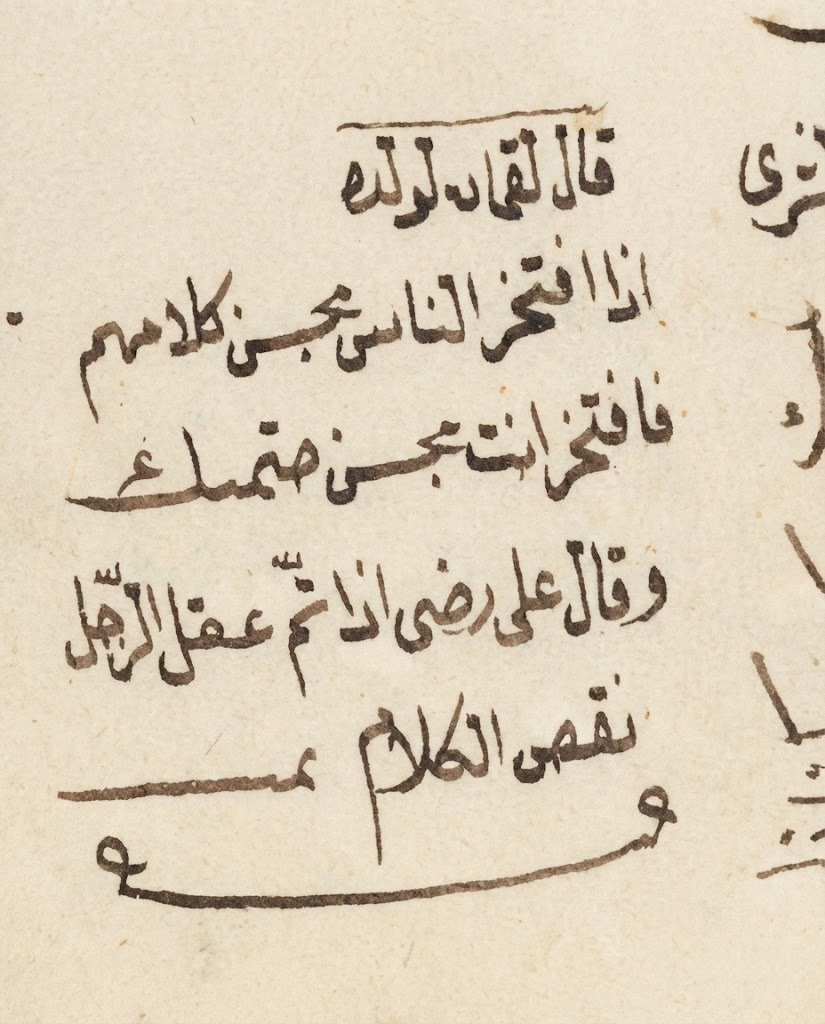 قال لقمان لولده
اذا افتخر الناس بحسن كلامهم
فافتخر انت بحسن صتمك
وقال على رضى اذا تمّ عقل الرّجل
نقص الكلام تمت